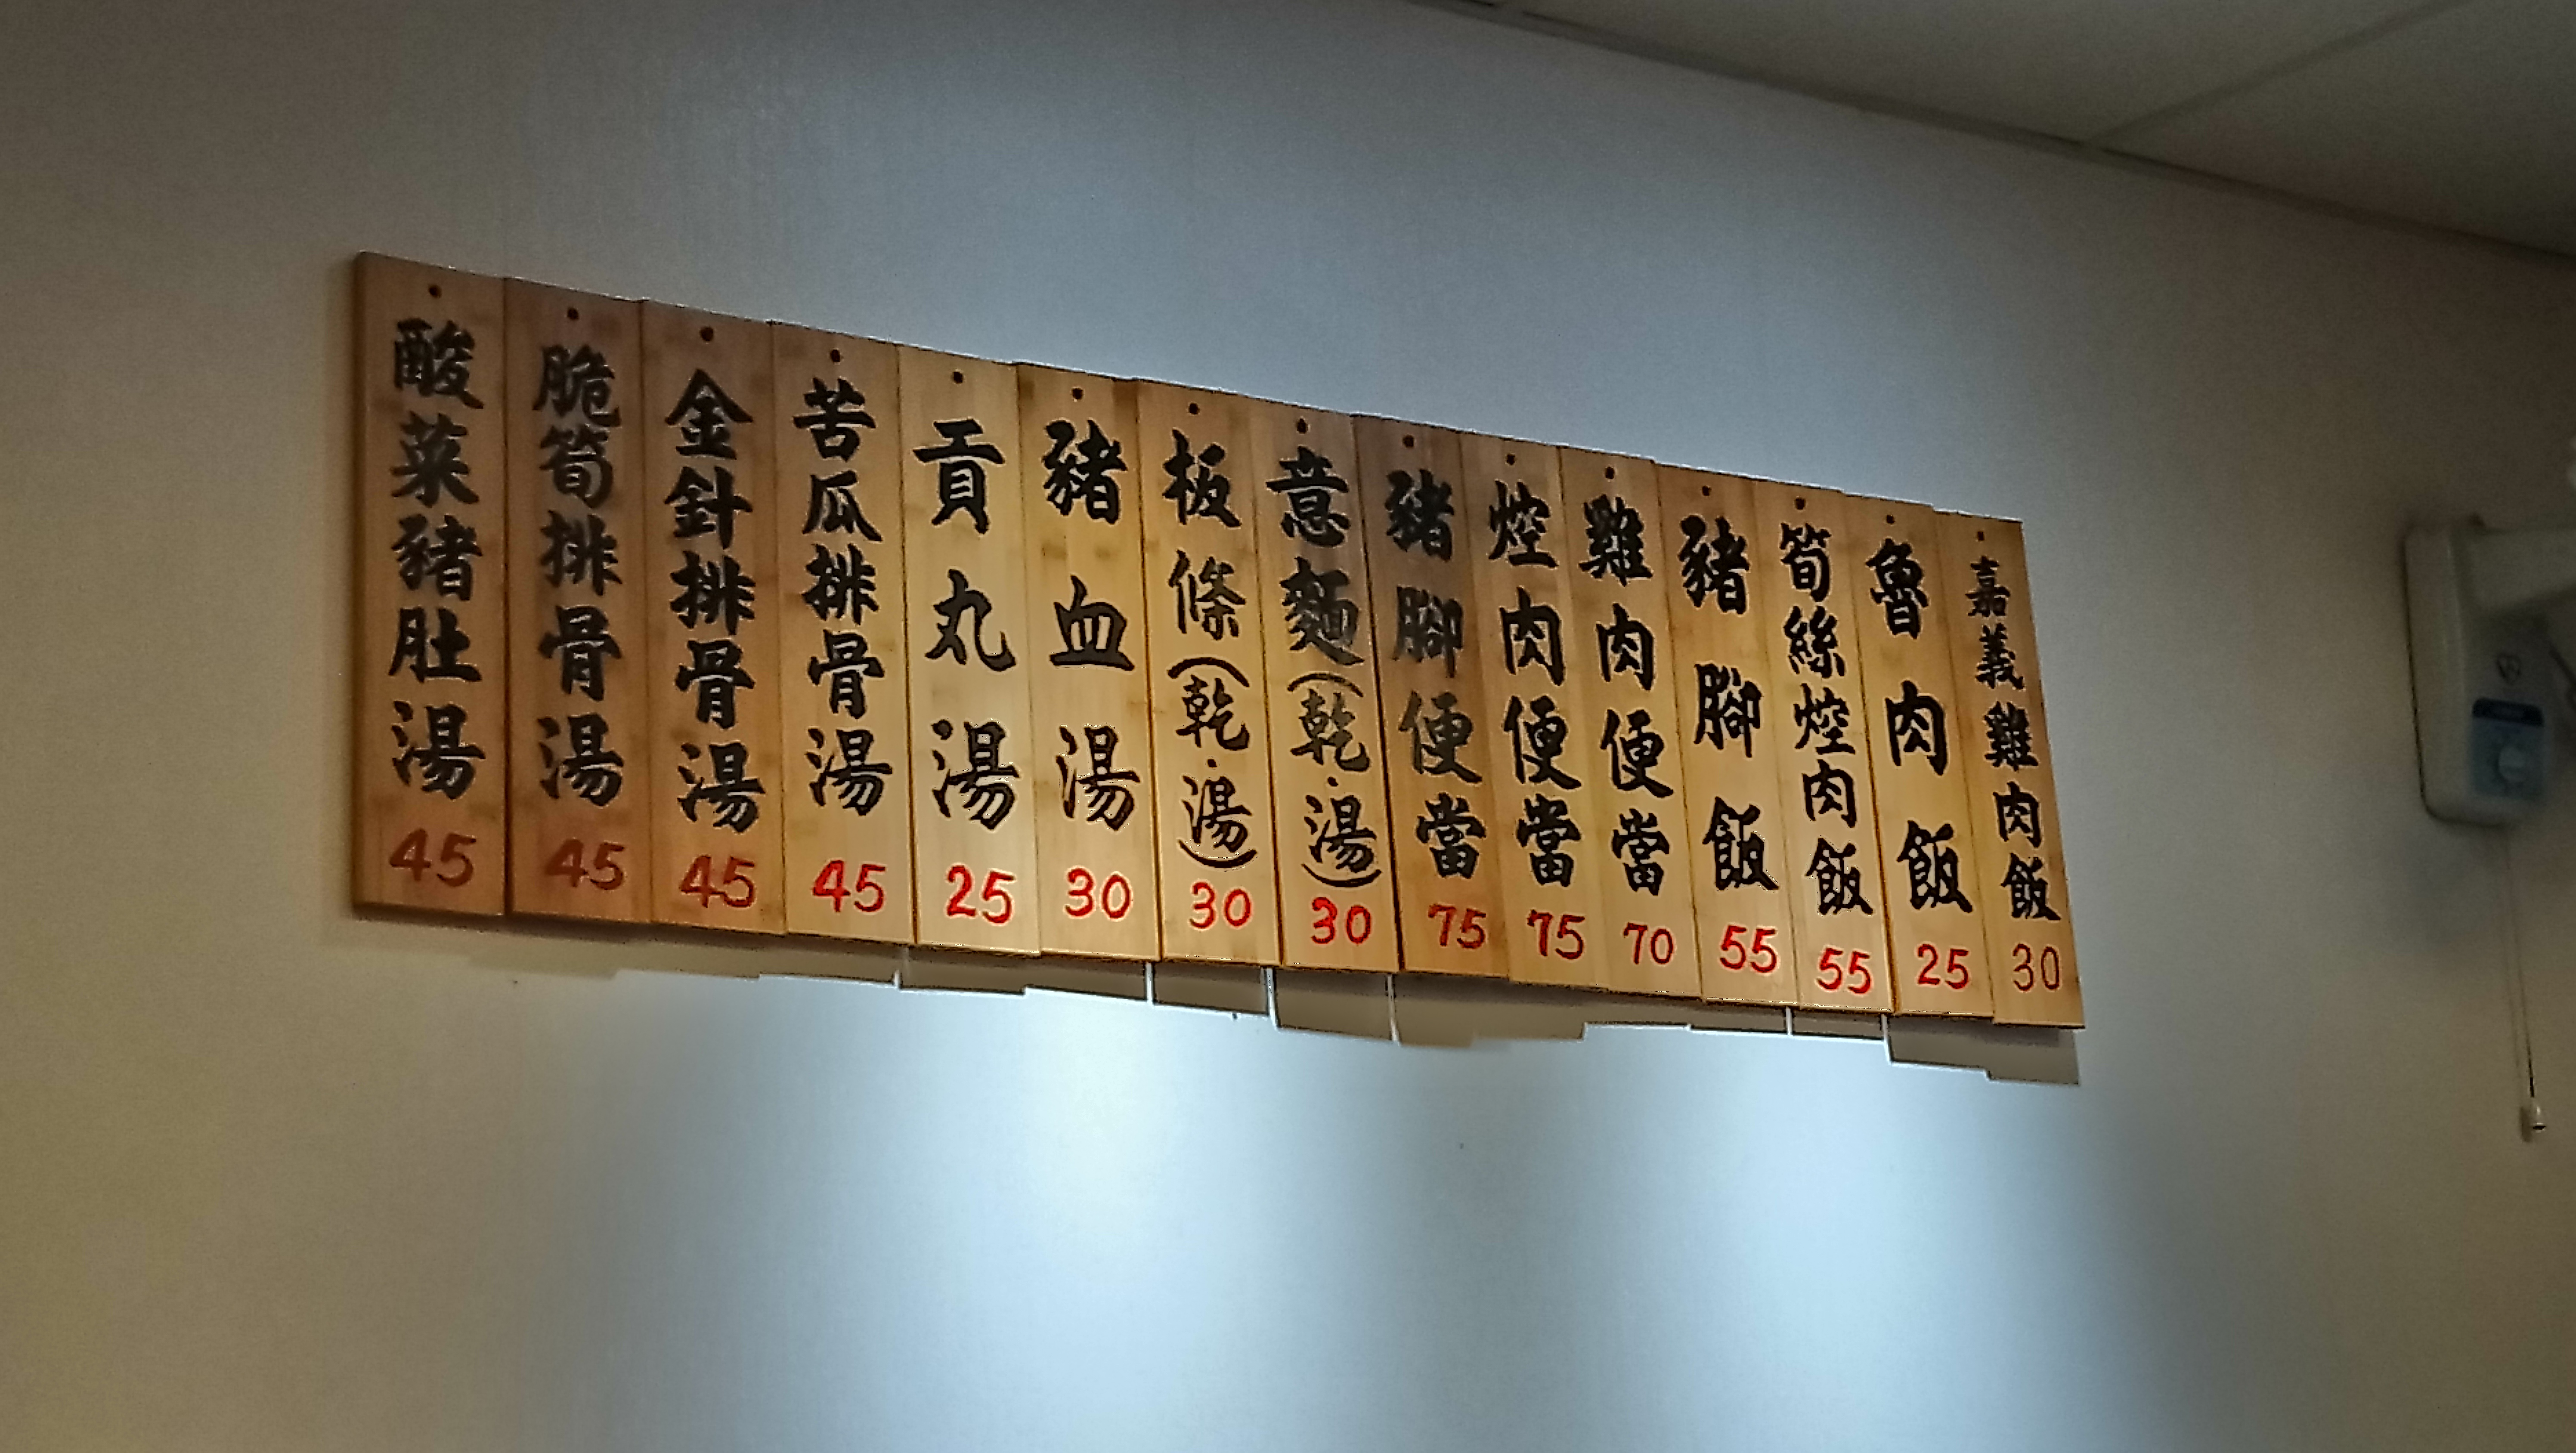 嘉義雞肉飯 30
魯肉飯 25
筍絲焢肉飯 55
豬腳飯 55
雞肉便當 70
焢肉便當 75
豬腳便當 75
意麵(乾·湯) 30
板條(乾·湯) 30
豬血湯 30
貢丸湯 25
苦瓜排骨湯 45
金針排骨湯 45
脆筍排骨湯 45
酸菜豬肚湯 45